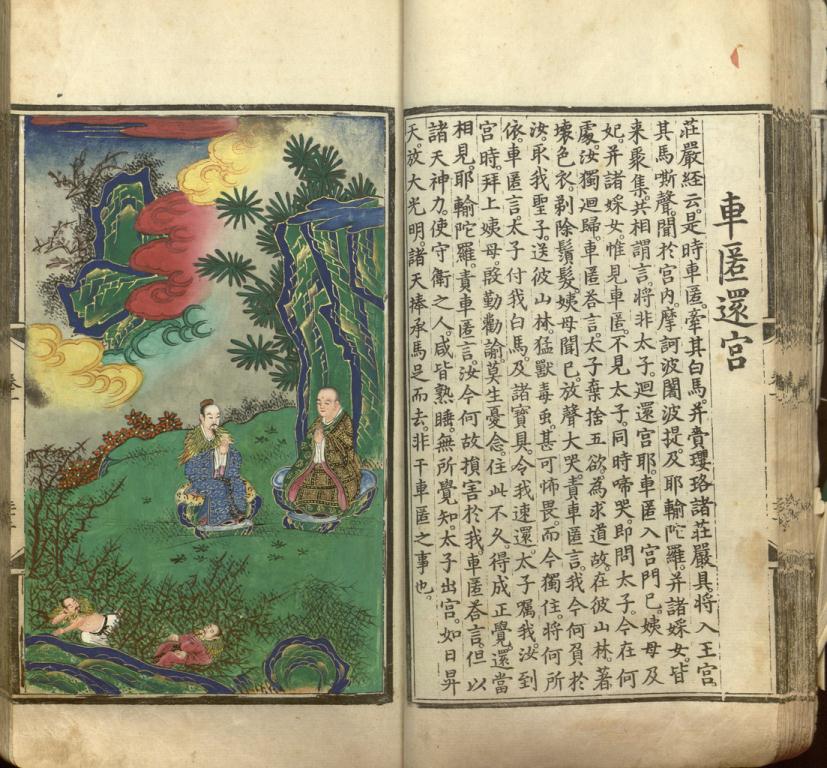 車匿還宮
莊嚴經云。是時車匿。牽其白馬。并賷瓔珞諸莊嚴具。將入王宮。
其馬嘶聲。聞於宮內。摩訶波闍波提。及耶輸陀羅。并諸婇女。皆
来聚集。共相謂言。將非太子。迴還宮耶。車匿入宮門已。姨母及
妃。并諸婇女。惟見車匿。不見太子。同時啼哭。即問太子。今在何
處。汝獨迴歸。車匿荅言。太子棄捨五欲。為求道故。在彼山林。著
壞色衣。剃除鬚髮。姨母聞已。放聲大哭。責車匿言。我今何負於
汝。取我聖子。送彼山林。猛獸毒虫。甚可怖畏。而今獨住。將何所
依。車匿言。太子付我白馬。及諸寶具。令我速還。太子屬我。汝到
宮時。拜上姨母。殷勤勸諭。莫生憂念。住此不久。得成正覺。還當
相見。耶輸陀羅。責車匿言。汝今何故。損害於我。車匿荅言。但以
諸天神力。使守衛之人。咸皆熟睡。無所覺知。太子出宮。如日昇
天。放大光明。諸天捧承馬足而去。非干車匿之事也。